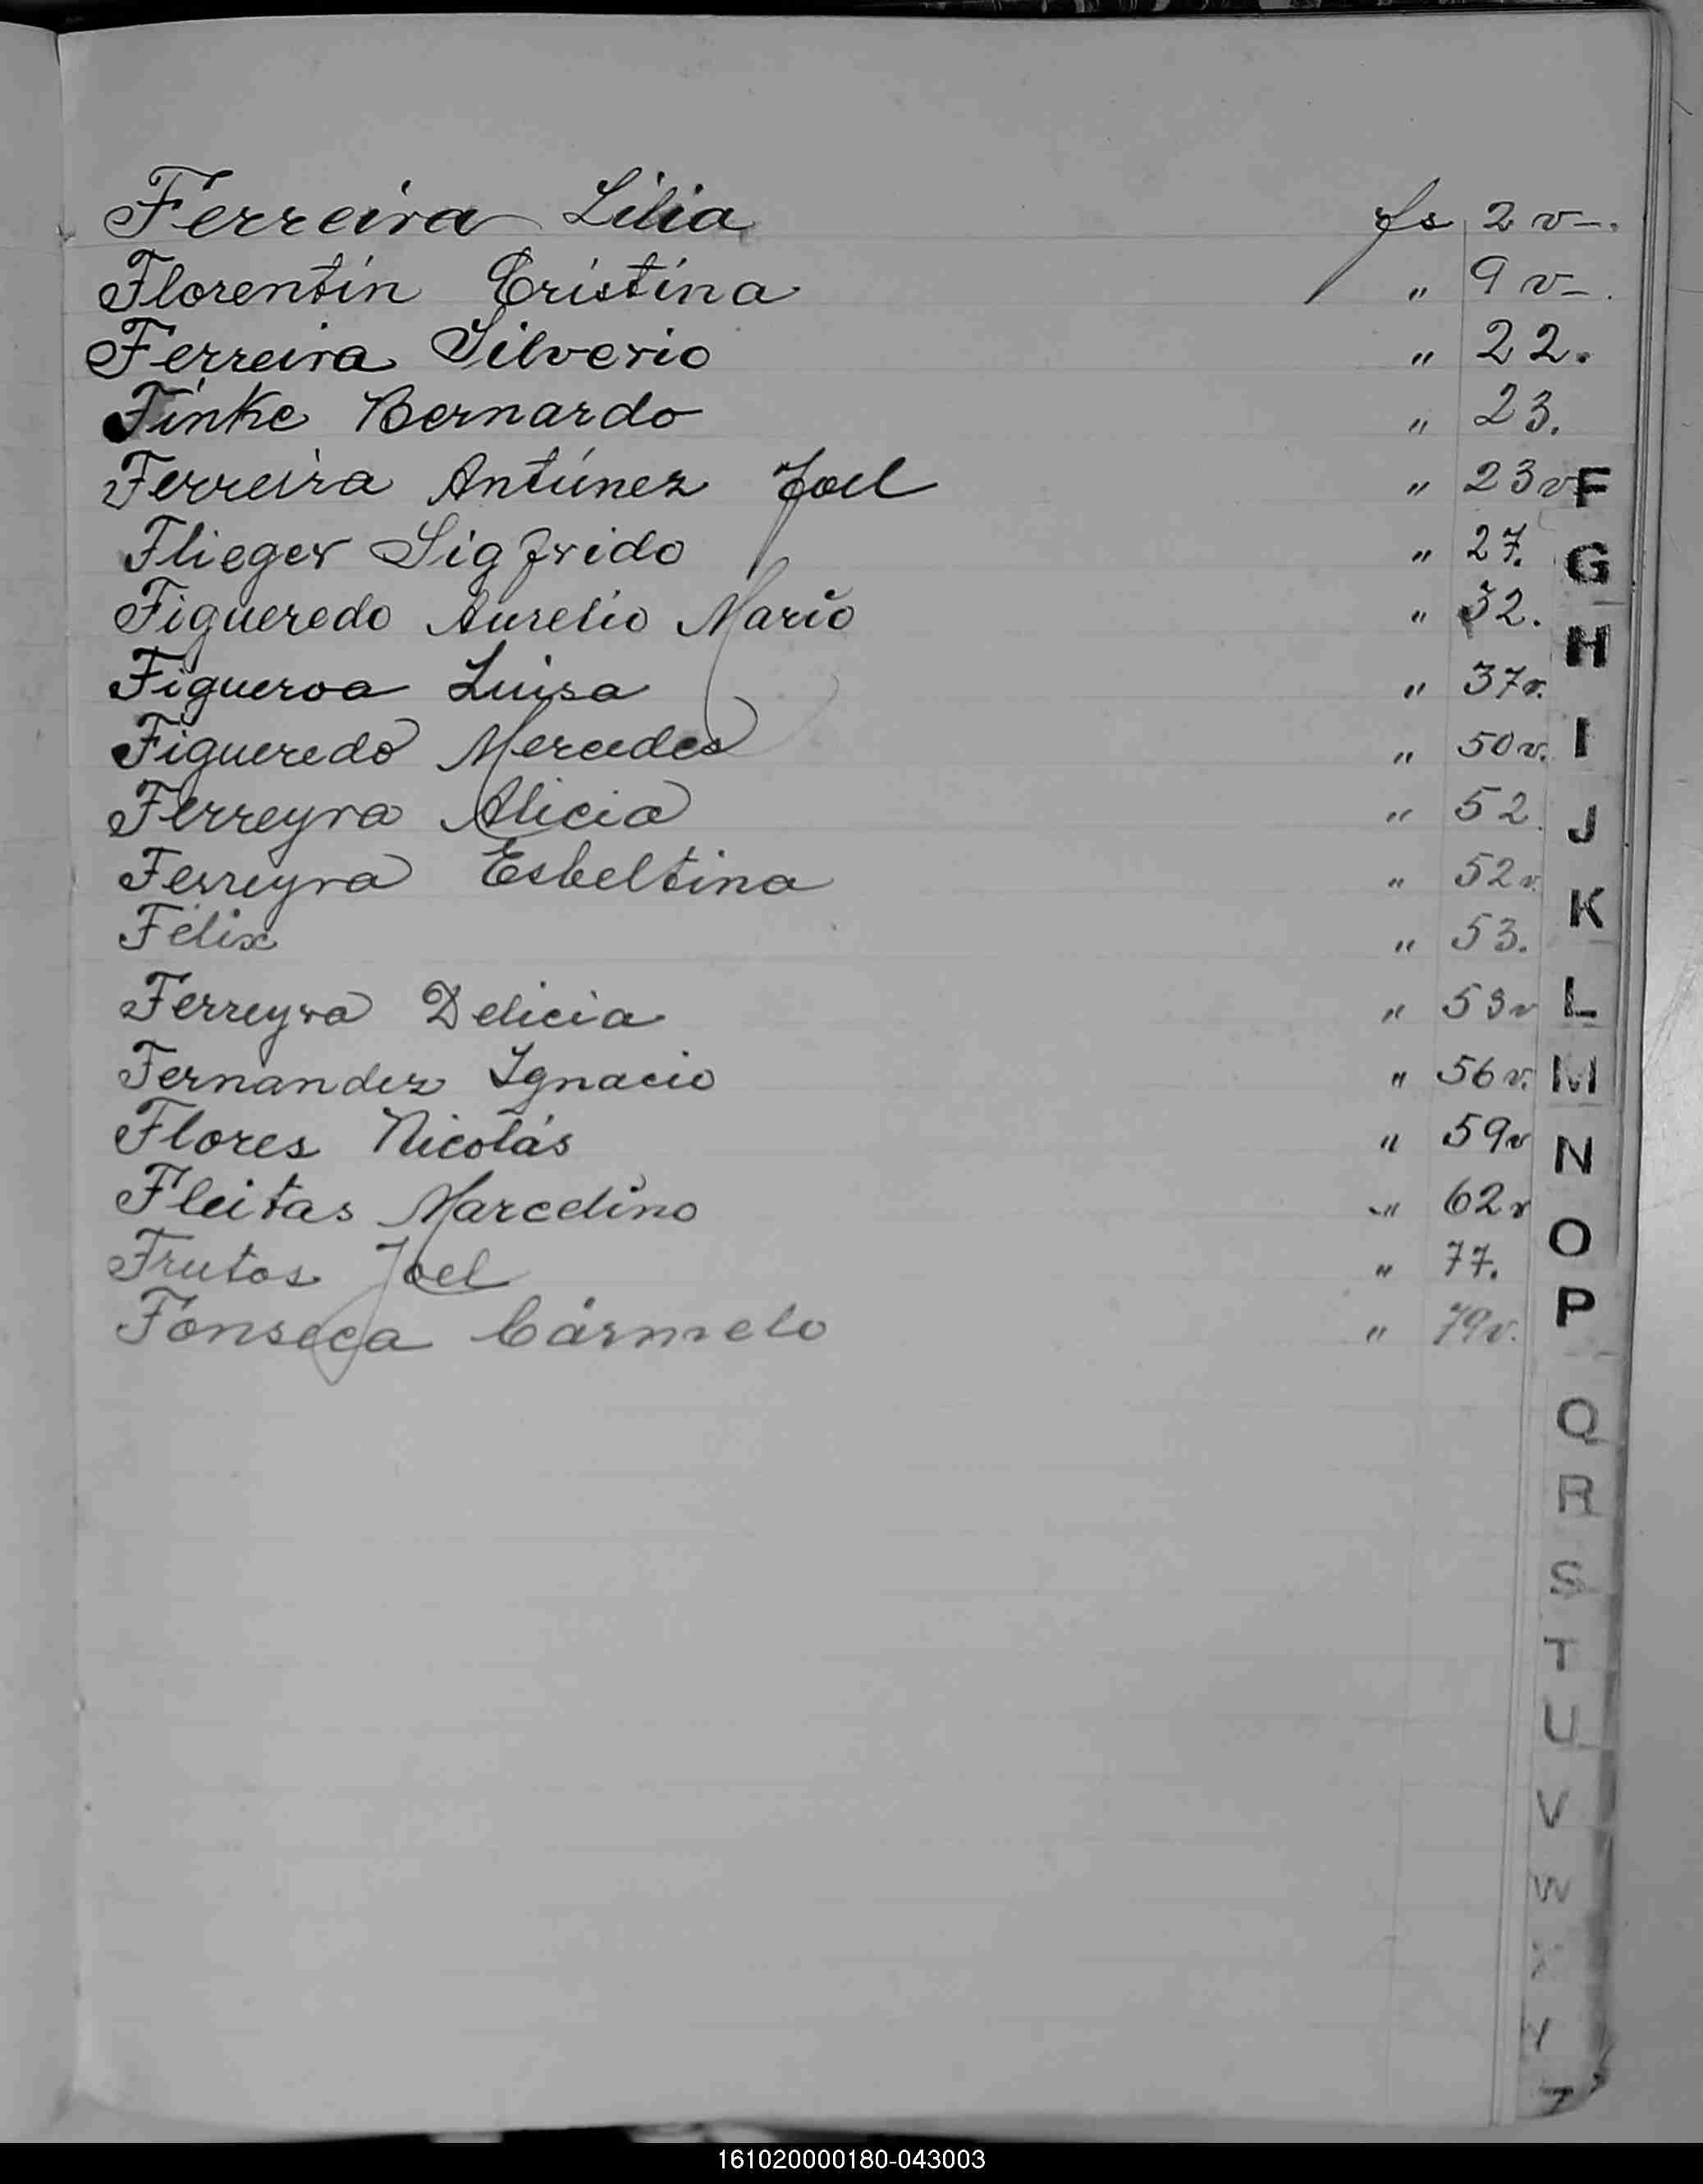 Ferreira Lilia fs 2 v-.
Florentín Cristina " 9 v-.
Ferreira Silverio " 22.
Finke Bernardo " 23.
Ferreira Antúnez Joel " 23 v
Flieger Sigfrido " 27.
Figueredo Aurelio Mario " 32.
Figueroa Luisa " 37 v.
Figueredo Mercedes " 50 v.
Ferreyra Alicia " 52.
Ferreyra Esbeltina " 52 v.
Félix " 53.
Ferreyra Delicia " 53 v
Fernandez Ignacio " 56 v.
Flores Nicolás " 59 v
Fleitas Marcelino " 62 v
Frutos Joel " 77.
Fonseca Cármelo " 79 v.
F
G
H
I
J
K
L
M
N
O
P
Q
R
S
T
U
V
W
X
Y
Z
161020000180-043003